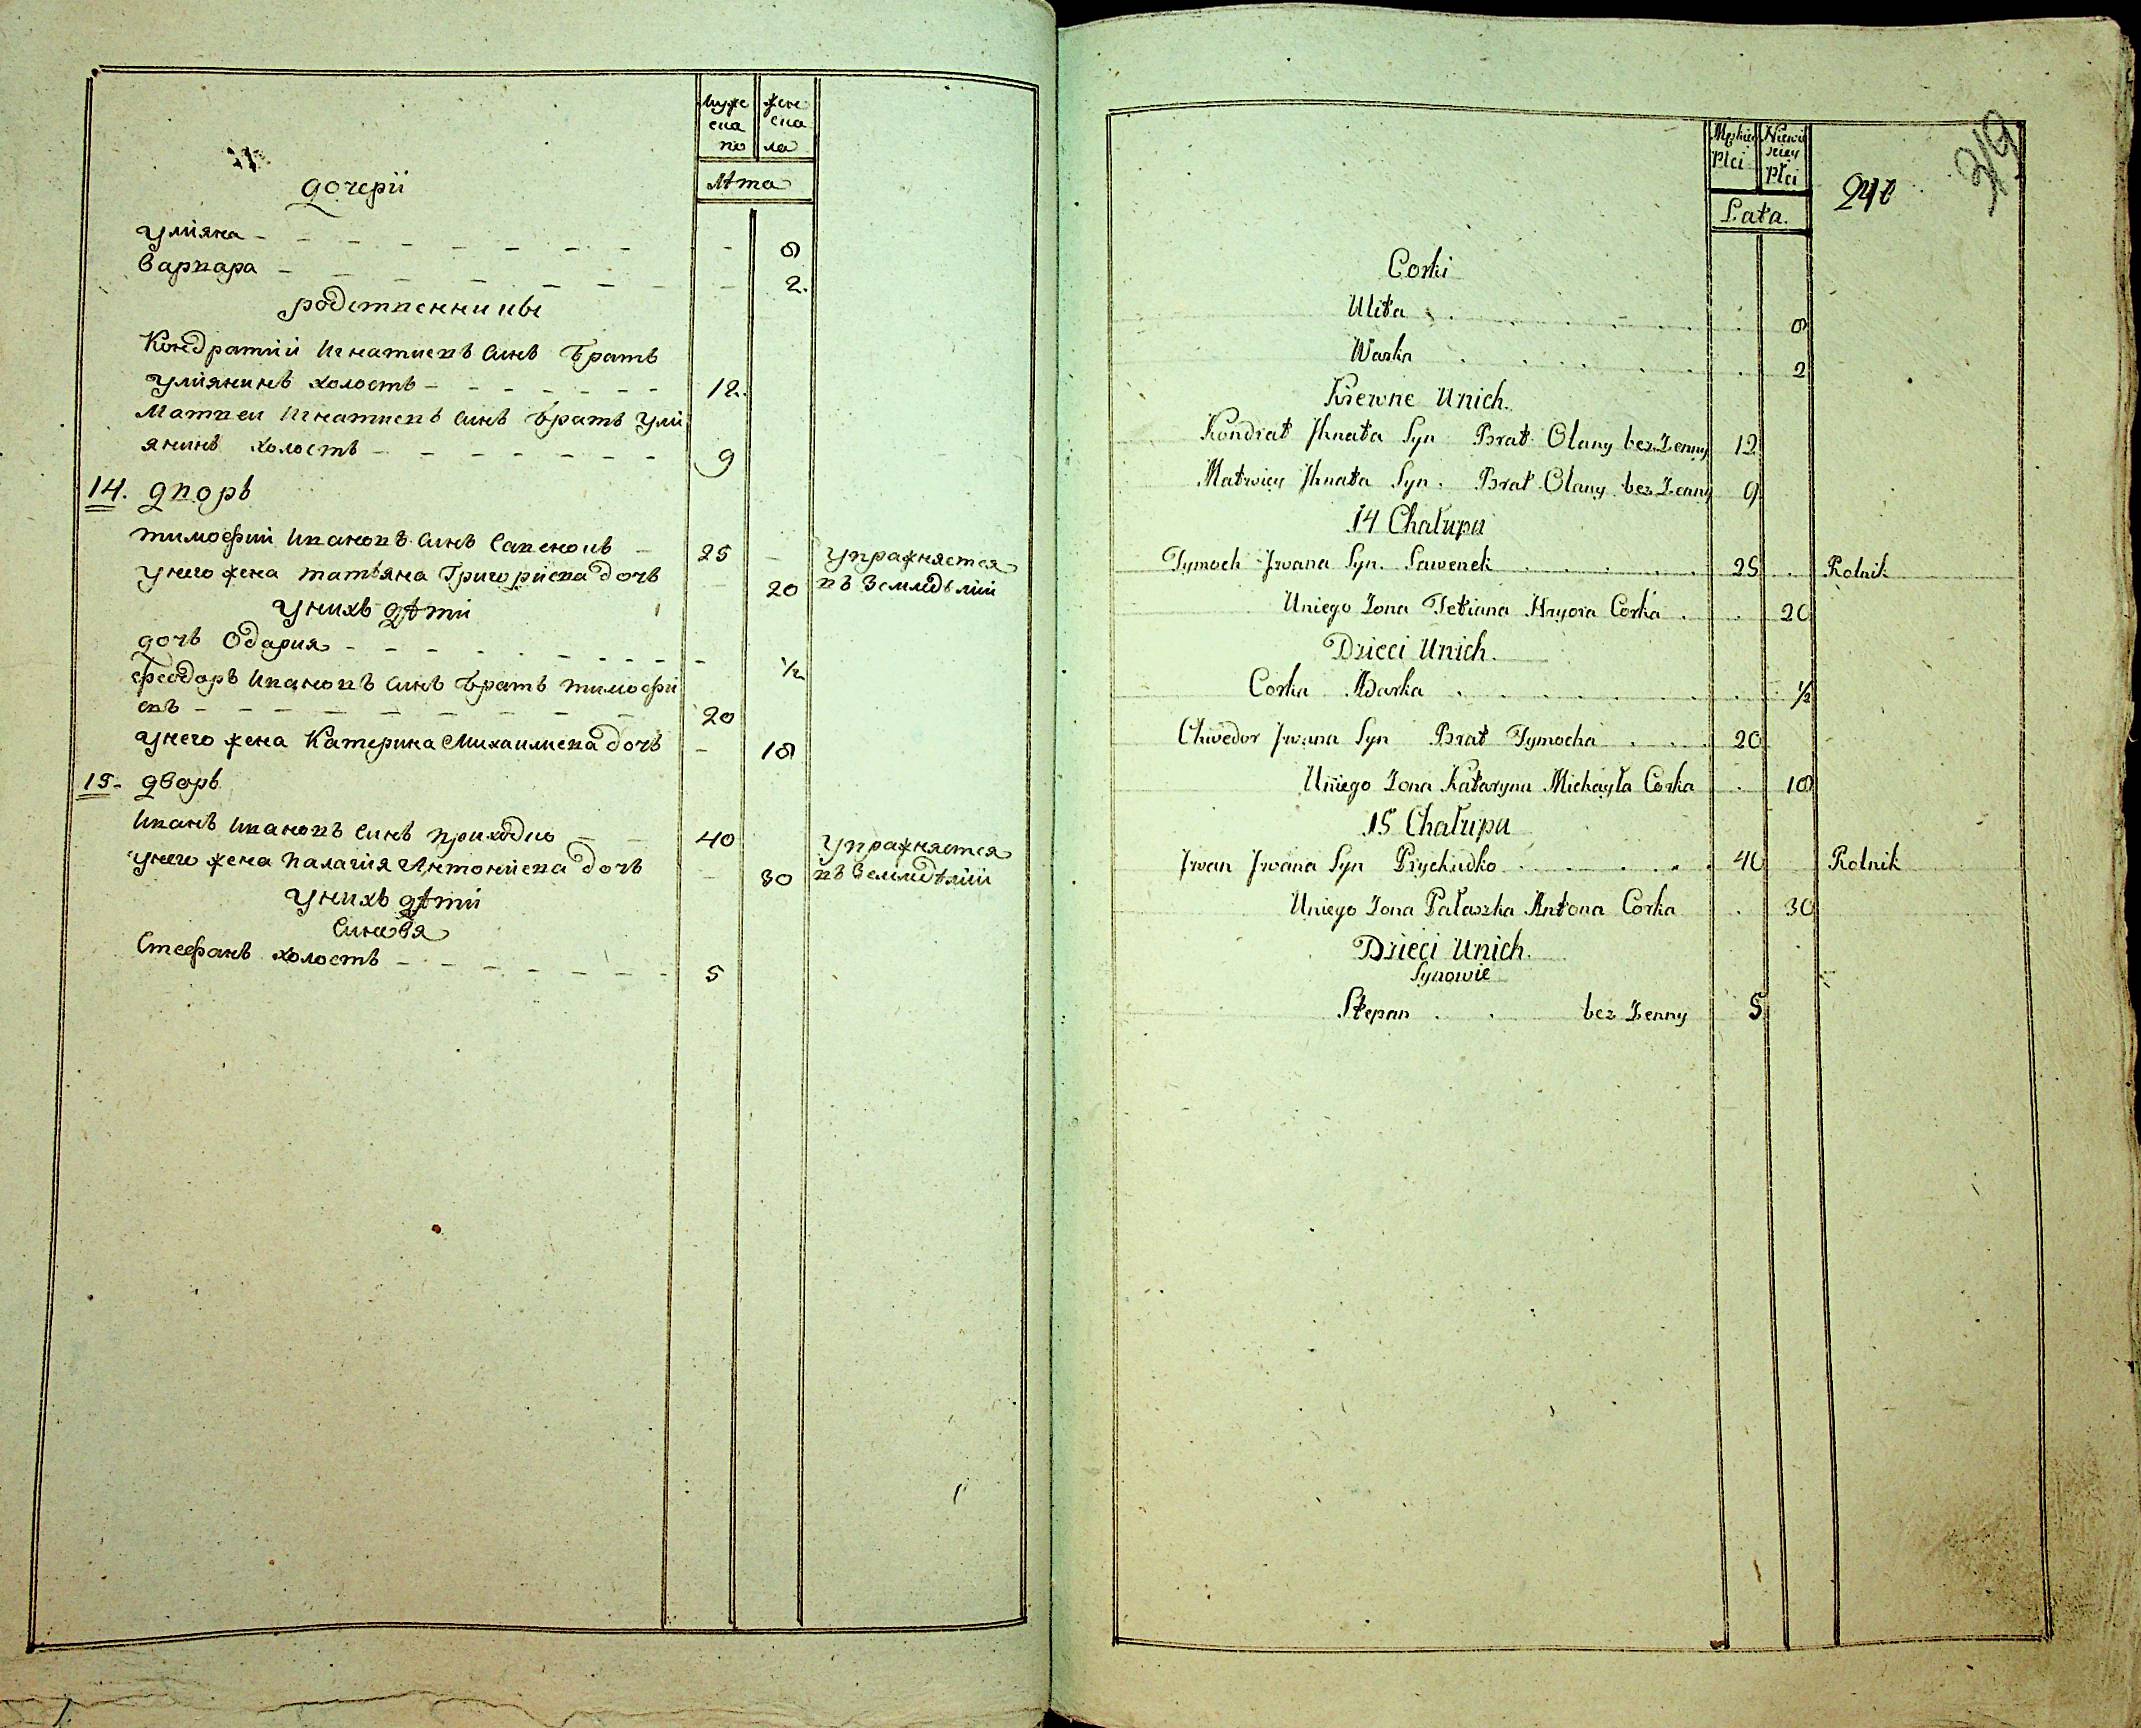 муже
ска
го
жен
ска
га
Лѣта
дочерїи
Улїяна - - - - - - - - 8
Варвара - - - - - - - - 2.
родственники
Кондратїй Игнатиевъ синъ братъ
Улїянинъ холостъ - - - - - - 12.
Матвеи Игнатиевъ синъ братъ Улї
янинъ холостъ - - - - - - 9
14. дворъ
Тимофїй Ивановъ синъ Савенокъ - 25 - упражняется
унего жена Татьяна Григорїева дочъ - 20 въ земледѣлїи
Унихъ дѣти
дочъ Одария - - - - - - - - - ½
Феодоръ Ивановъ синъ братъ Тимофи
евъ - - - - - - - - 20
Унего жена Катерина Михаилиева дочъ - 18
15. дворъ
Иванъ Ивановъ синъ Приходко - - 40 упражняется
унего жена Палагїя Антонїева дочъ - 30 въ земледѣлїи
Унихъ дѣти
Синовя
Стефанъ холостъ - - - - - - - 5
219
Męskiey
Płci
Niewie
sciey
Płci
241
Lata.
Corki
Ulita . . . . . . . 8
Warka . . . . . . . 2
Krewne Unich.
Kondrat Jhnata Syn Brat Olany bez Żenny 12
Matwiey Jhnata Syn. Brat Olany bez Żenny 9
14 Chałupa
Tymoch Jwana Syn. Sawenek . . . . . . 25 . Rolnik
Uniego Żona Tetiana Hryora Corka . . 20
Dzieci Unich.
Corka Adarka . . . . . . . . ½
Chwedor Jwana Syn Brat Tymocha . . . . 20
Uniego Żona Kataryna Michayła Corka . 18
15 Chałupa
Jwan Jwana Syn Prychidko . . . . . . 40 Rolnik
Uniego Żona Pałaszka Antona Corka . 30
Dzieci Unich.
Synowie
Stepan . . bez Żenny 5